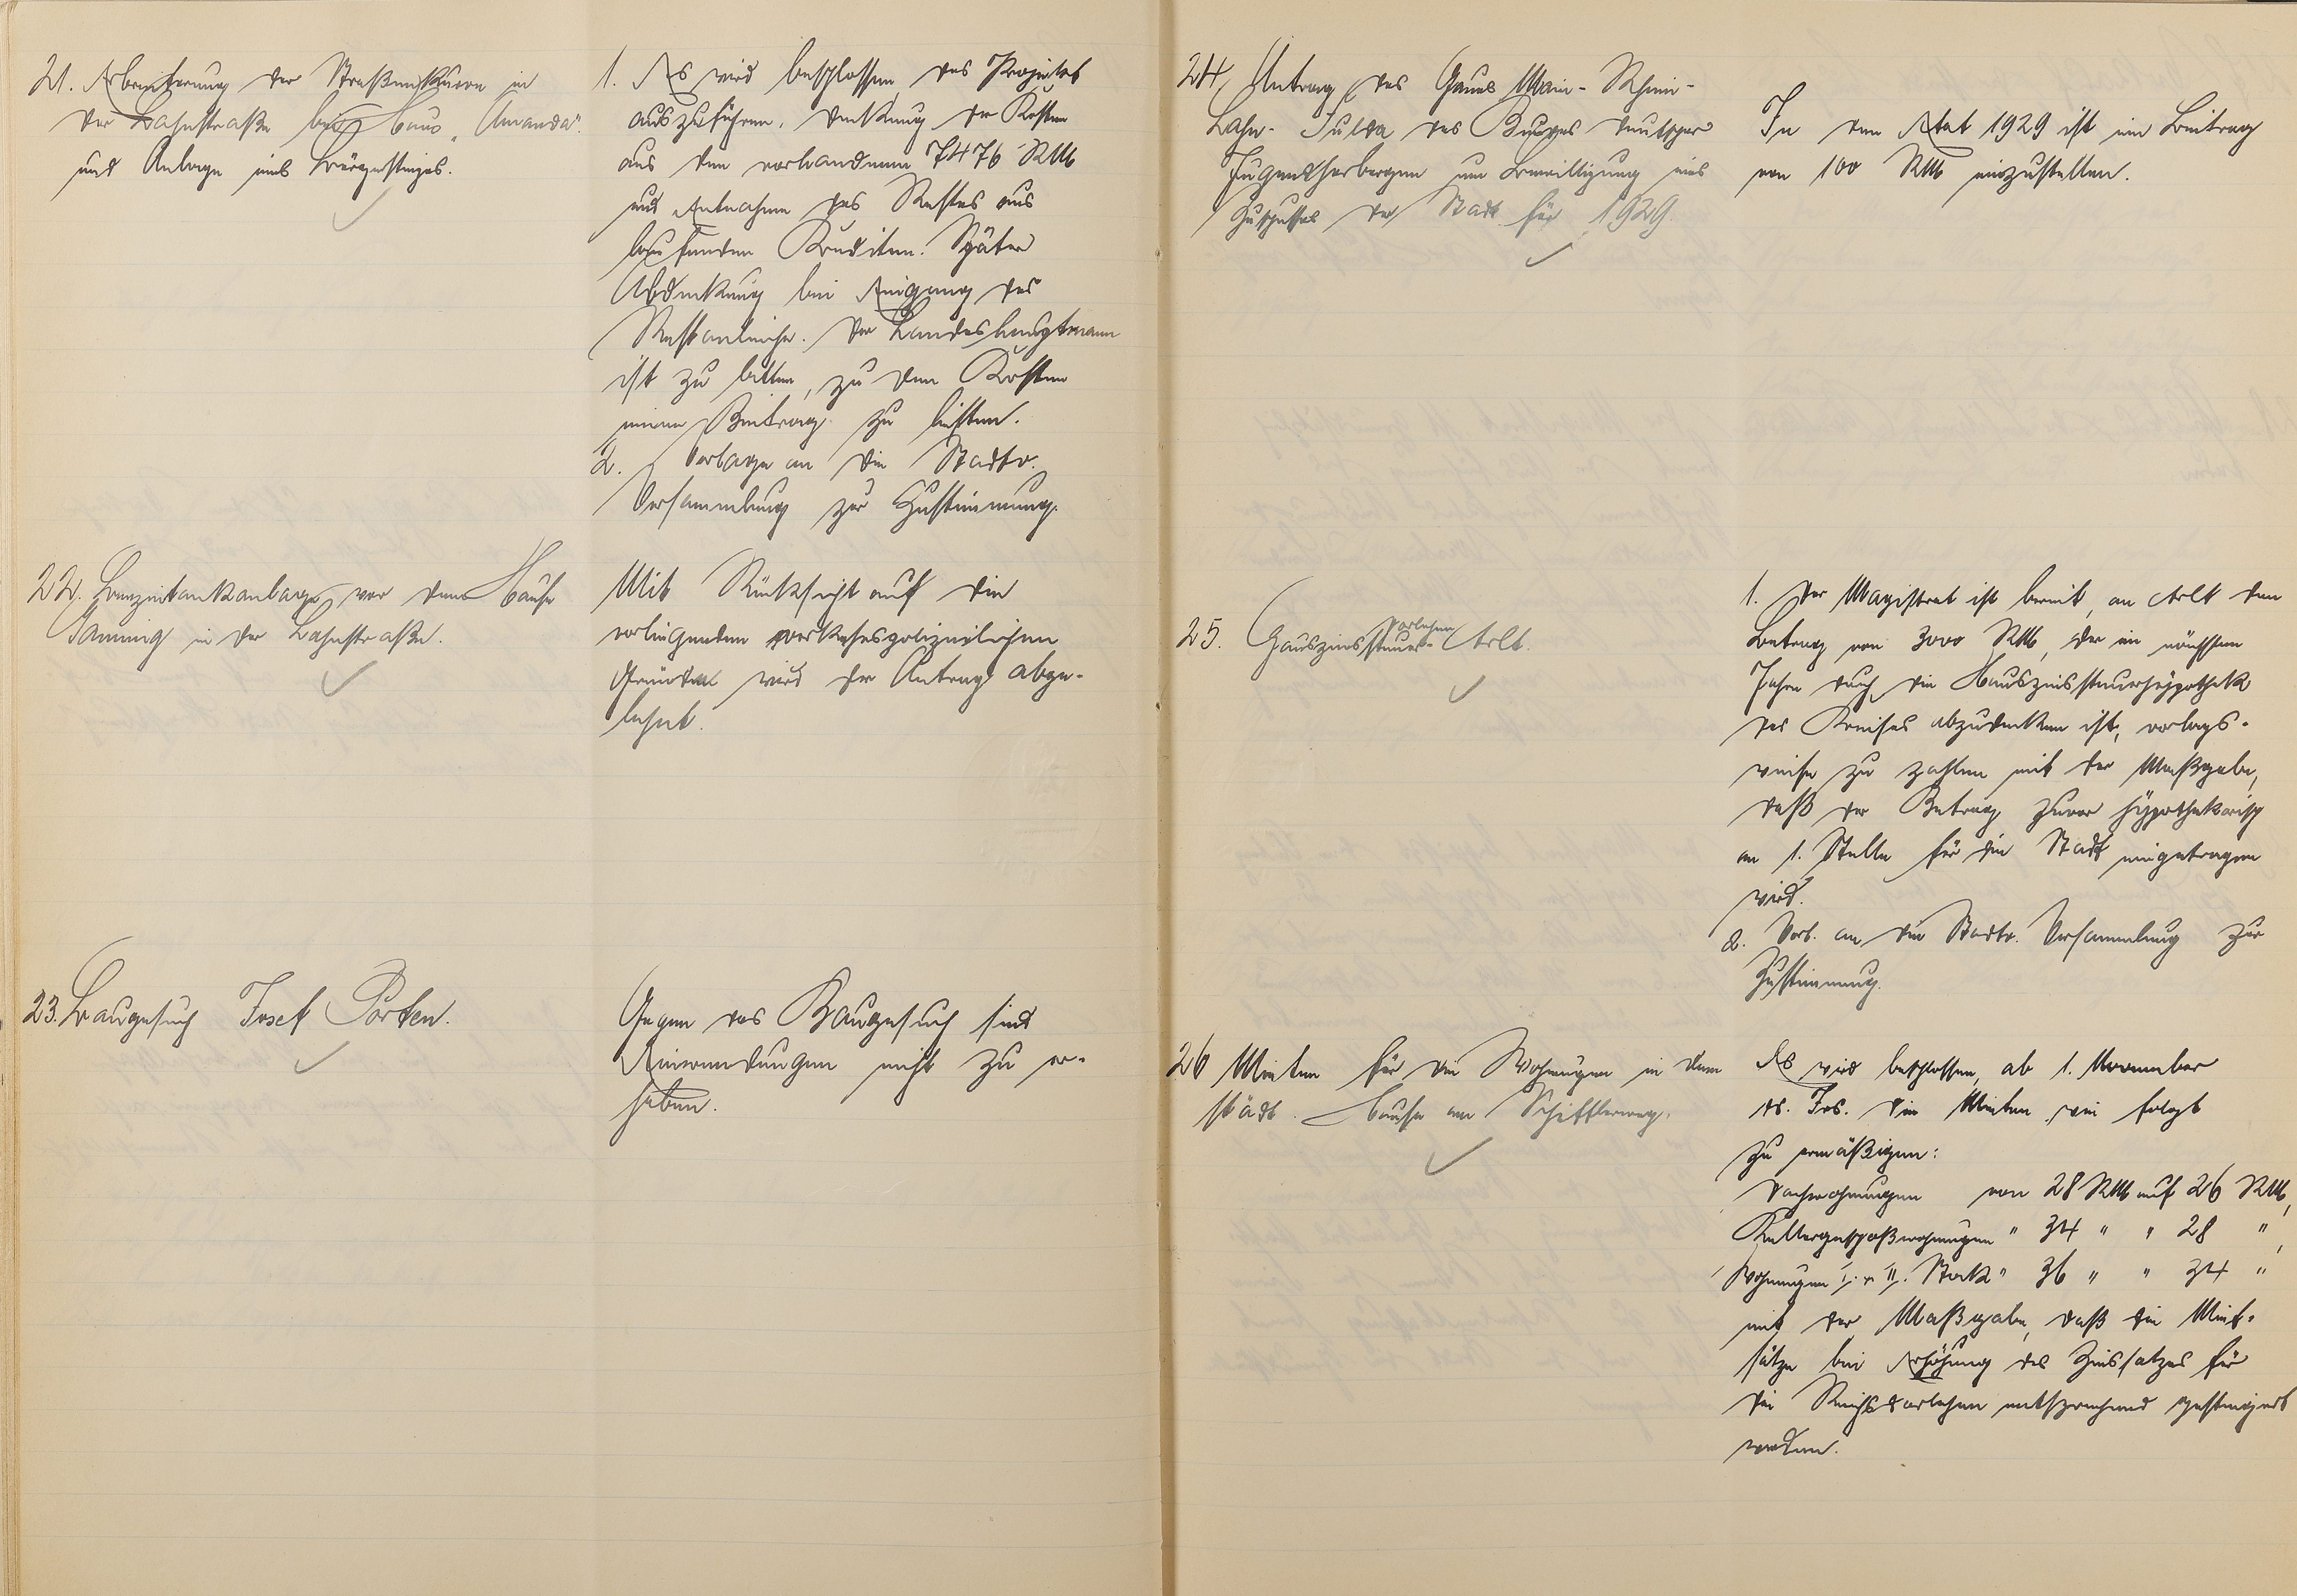 21. Erbreiterung der Straßenkurve in
der Lahnstraße beim Haus "Amanda".
und Anlage eines Bürgersteiges.
1. Es wird beschlossen, das Projekt
auszuführen. Deckung der Kosten
aus den vorhandenen 7476 RM
und Entnahme des Restes aus
laufenden Krediten. Später
Abdeckung bei Eingang der
Restanleihe. Der Landeshauptmann
ist zu bitten, zu den Kosten
einen Beitrag zu leisten.
2. Vorlage an die Stadtv.
Versammlung zur Zustimmung.
22. Benzintankanlage vor dem Hause
in der Lahnstraße.
Mit Rücksicht auf die
vorliegenden verkehrspolizeilichen
Gründe wird der Antrag abge-
lehnt.
23. Baugesuch Josef Porten.
Gegen das Baugesuch sind
Einwendungen nicht zu er-
heben.
24, Antrag des Gaues Main-Rhein-
Lahn-Fulda des Bundes deutscher
Jugendherbergen um Bewilligung eines
Zuschusses der Stadt für 1929.
In den Etat 1929 ist ein Beitrag
von 100 RM einzustellen.
25. Hauszinssteuer-Darlehen Arlt.
1. Der Magistrat ist bereit, an Arlt den
Betrag von 3000 RM, der im nächsten
Jahre durch die Hauszinssteuerhypothek
des Kreises abzudecken ist, vorlags-
weise zu zahlen mit der Maßgabe,
daß der Betrag zuvor hypothekarisch
an 1. Stelle für die Stadt eingetragen
wird.
2. Vorl. an die Stadtv. Versammlung zur
Zustimmung.
26 Mieten für die Wohnungen in dem
städt. Hause am Schifflerweg.
Es wird beschlossen, ab 1. November
ds. Jrs. die Mieten wie folgt
zu ermäßigen:
Dachwohnungen von 28 RM auf 26 RM,
Kellergeschoßwohnungen " 34 " " 28 ",
Wohnungen I. u. II. Stock " 36 " " 34 "
mit der Maßgabe, daß die Miet-
sätze bei Erhöhung des Zinssatzes für
die Reichsdarlehen entsprechend gesteigert
werden.